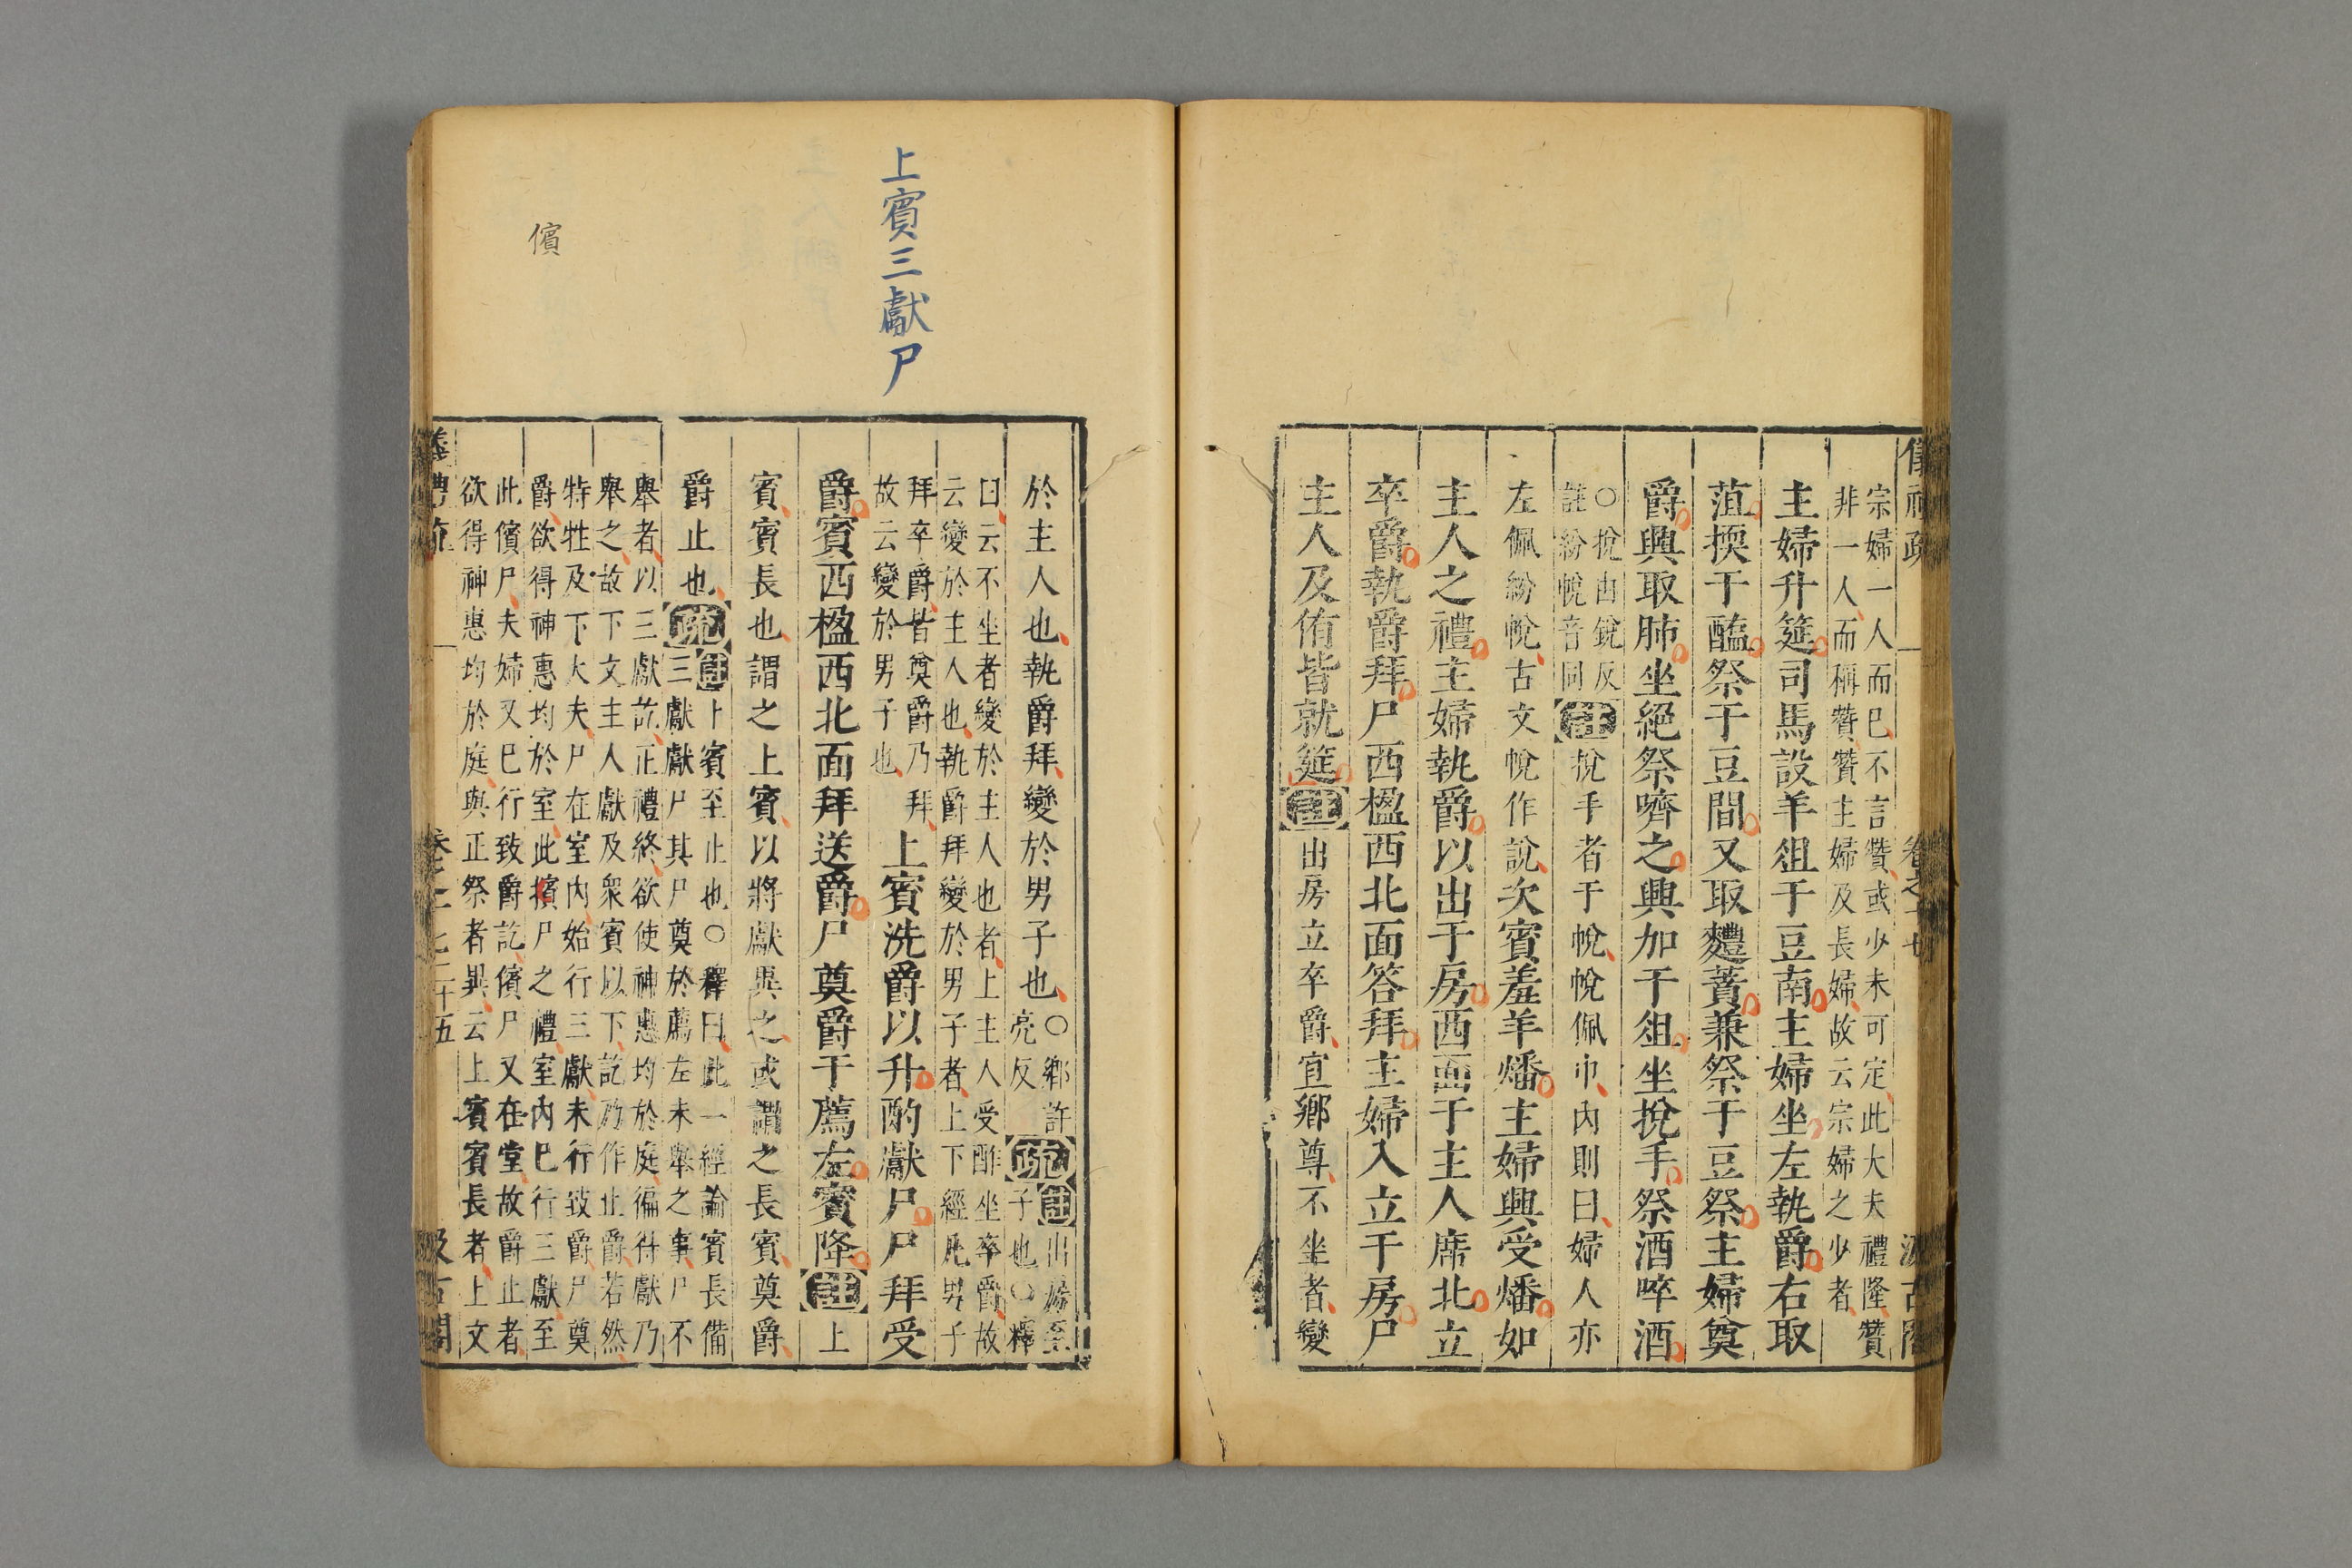 宗婦一人而已不言贊或少未可定此大夫禮隆贊
非一人而稱贊贊主婦及長婦故云宗婦之少者
主婦升筵司馬設羊俎于豆南主婦坐左執爵右取
菹㨎于醢祭于豆間又取麷蕡兼祭于豆祭主婦奠
爵興取肺坐絕祭嚌之興加于俎坐挩手祭酒啐酒
○挩由銳反
註紛帨音同
註挩手者于帨帨佩巾內則曰婦人亦
左佩紛帨古文帨作說次賓羞羊燔主婦興受燔如
主人之禮主婦執爵以出于房西面于主人席北立
卒爵執爵拜尸西楹西北面答拜主婦入立于房尸
主人及侑皆就筵註出房立卒爵宜鄉尊不坐者變
上賓三獻尸
儐
於主人也執爵拜變於男子也
○鄉許
亮反
疏註出房至
子也○釋
曰云不坐者變於主人也者上主人受酢坐卒爵故
云變於主人也執爵拜變於男子者上下經凡男子
拜卒爵皆奠爵乃拜
故云變於男子也
上賓洗爵以升酌獻尸尸拜受
爵賓西楹西北面拜送爵尸奠爵于薦左賓降註上
賓賓長也謂之上賓以將獻異之或謂之長賓奠爵
爵止也
疏註上賓至止也○釋曰此一經論賓長備
三獻獻尸其尸奠於薦左未舉之事尸不
舉者以三獻訖正禮終欲使神惠均於庭徧得獻乃
舉之故下文主人獻及衆賓以下訖乃作止爵若然
特牲及下大夫尸在室內始行三獻未行致爵尸奠
爵欲得神惠均於室此擯尸之禮室內已行三獻至
此儐尸夫婦又已行致爵訖儐尸又在堂故爵止者
欲得神惠均於庭與正祭者異云上賓賓長者上文